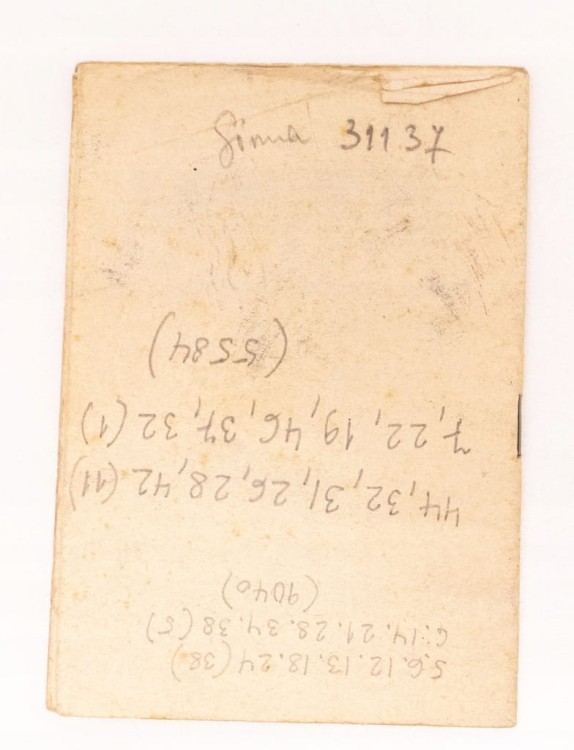 311 37
5.6.12.13.18.24 (38)
6.14.21.28.34.38 (5)
(9040)
44, 32, 31, 26, 28, 42 (11)
7, 22, 19, 46, 37, 32 (1)
(5584)